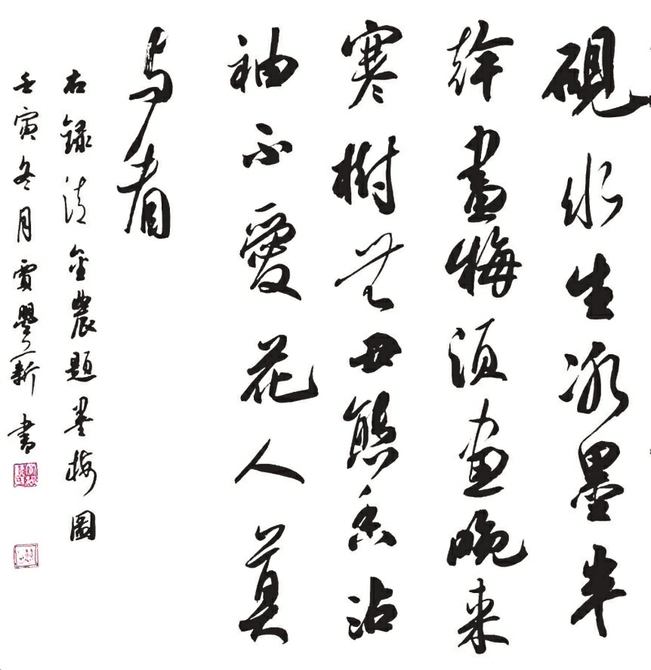 硯水生冰墨半
幹畫梅須画晚来
寒樹無丑態香沾
袖不愛花人莫
与看
右錄清金農題墨梅圖
壬寅冬月賈新書